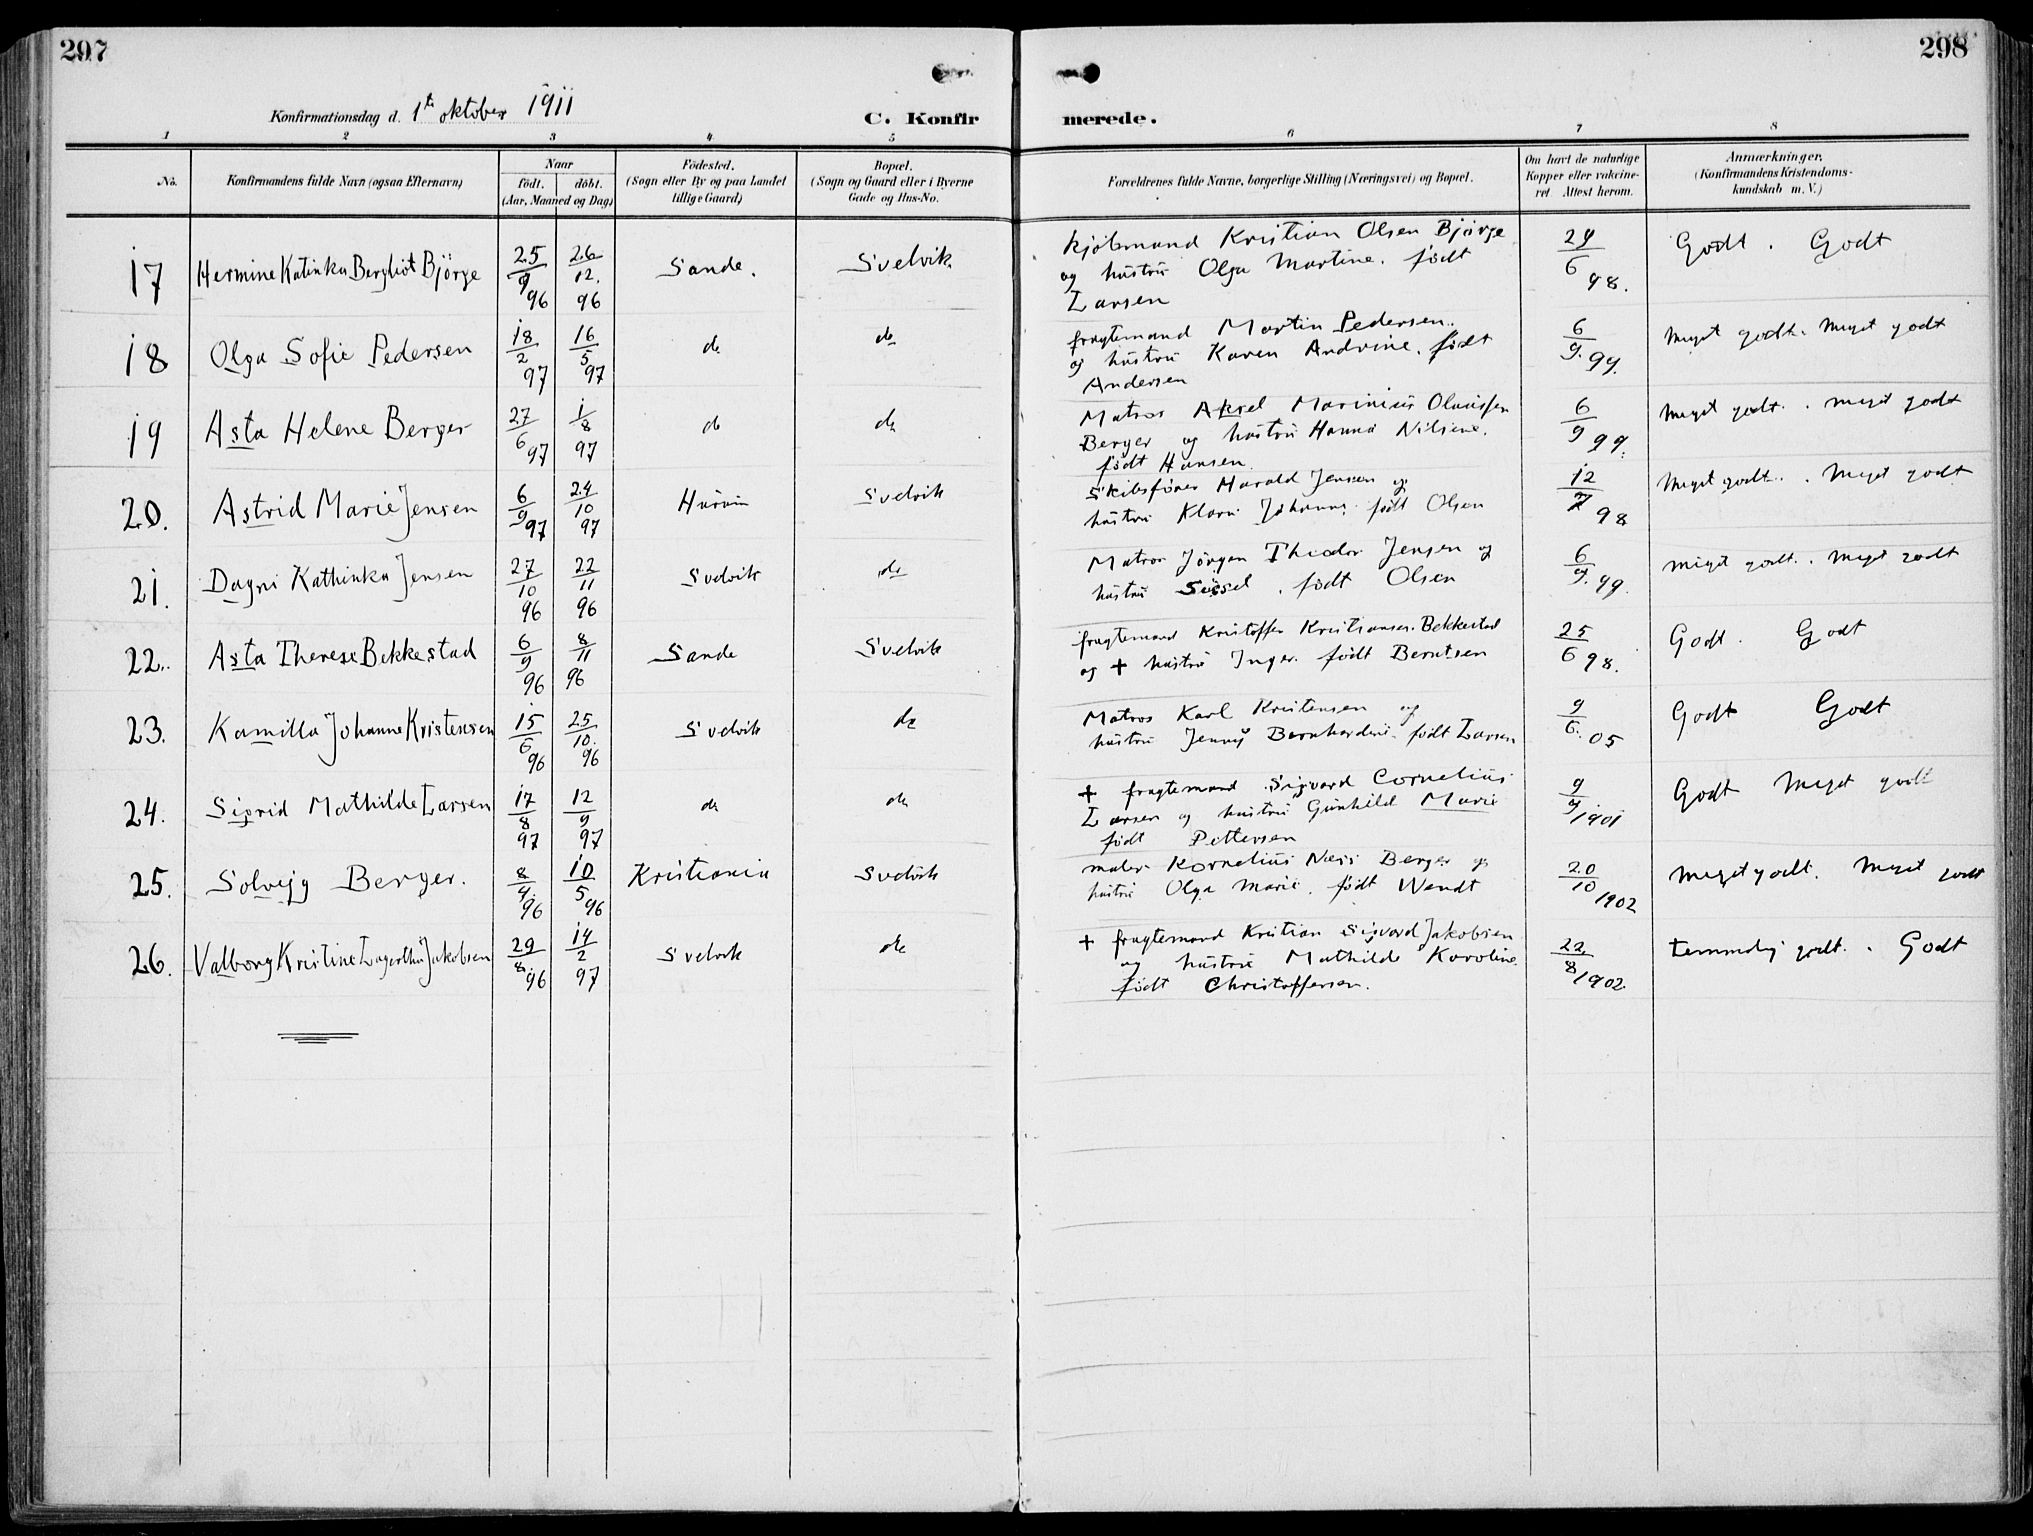 297
298
Konfirmationsdag d. 1te oktober 1911
C. Konfirmerede.
1 2 3 4 5 6 7 8
No.
Konfirmandens fulde Navn (ogsaa Efternavn)
Naar
födt. döbt.
(Aar, Maaned og Dag)
Födested.
(Sogn eller By og paa Landet
tillige Gaard)
Bopæl.
(Sogn og Gaard eller i Byerne
Gade og Hus-No.
Forældrenes fulde Navne, borgerlige Stilling (Næringsvei) og Bopæl.
Om havt de naturlige
Kopper eller vakcine-
ret. Attest herom.
Anmærkninger.
(Konfirmandens Kristendoms-
kundskab m. V.)
17 Hermine Katinka Bergliot Björge 25/9 96 26/12. 96 Sande. Svelvik
kjöbmand Kristian Olsen Björge
og hustru Olga Martine. født
Larsen
24/6 98. Godt. Godt
18 Olga Sofie Pedersen 18/2 97 16/5 97 do do
fragtemand Martin Pedersen.
og hustru Karen Andrine. født
Andersen
6/9. 99. Meget godt. Meget godt
19 Asta Helene Berger 27/6 97 1/8 97 do do
Matros Aksel Marinius Olaussen
Berger og hustru Hanna Nilsine.
født Hansen.
6/9 99. Meget godt. . Meget godt
20. Astrid Marie Jensen 6/9 97 24/10 97 Hurum Svelvik
Skibsfører Harald Jensen og
hustru Klara Johanne. født Olsen
12/7 98 Meget godt. . Meget godt
21. Dagni Kathinka Jensen 27/10 96 22/11 96 Svelvik do
Matros Jörgen Theodor Jensen og
hustru Sissel . født Olsen
6/9. 99. Meget godt. . Meget godt
22. Asta Therese Bekkestad 6/9 96 8/11 96 Sande Svelvik
fragtemand Kristoffer Kristiansen Bekkestad
og + hustru Inger. født Berntsen
25/6 98. Godt. Godt
23. Kamilla Johanne Kristensen 15/6 96 25/10. 96 Svelvik do
Matros Karl Kristensen og
hustru Jenny Bernhardine. født Larsen
9/6. 05 Godt Godt
24. Sigrid Mathilde Larsen 17/8 97 12/9 97 do do
+ fragtemand Sigvard Cornelius
Larsen og hustru Gunhild Marie
født Pettersen
9/9 1901 Godt Meget godt
25. Solveig Berger. 8/4. 96 10/5 96 Kristiania Svelvik
maler Kornelius Næss Berger og
hustru Olga Marie. født Wendt
20/10 1902 Meget godt. Meget godt
26. Valborg Kristine Lagertha Jakobsen 29/8. 96 14/2 97 Svelvik do
+ fragtemand Kristian Sigvard Jakobsen
og hustru Mathilde Karoline.
født Christoffersen.
22/8 1902. temmelig godt. . Godt